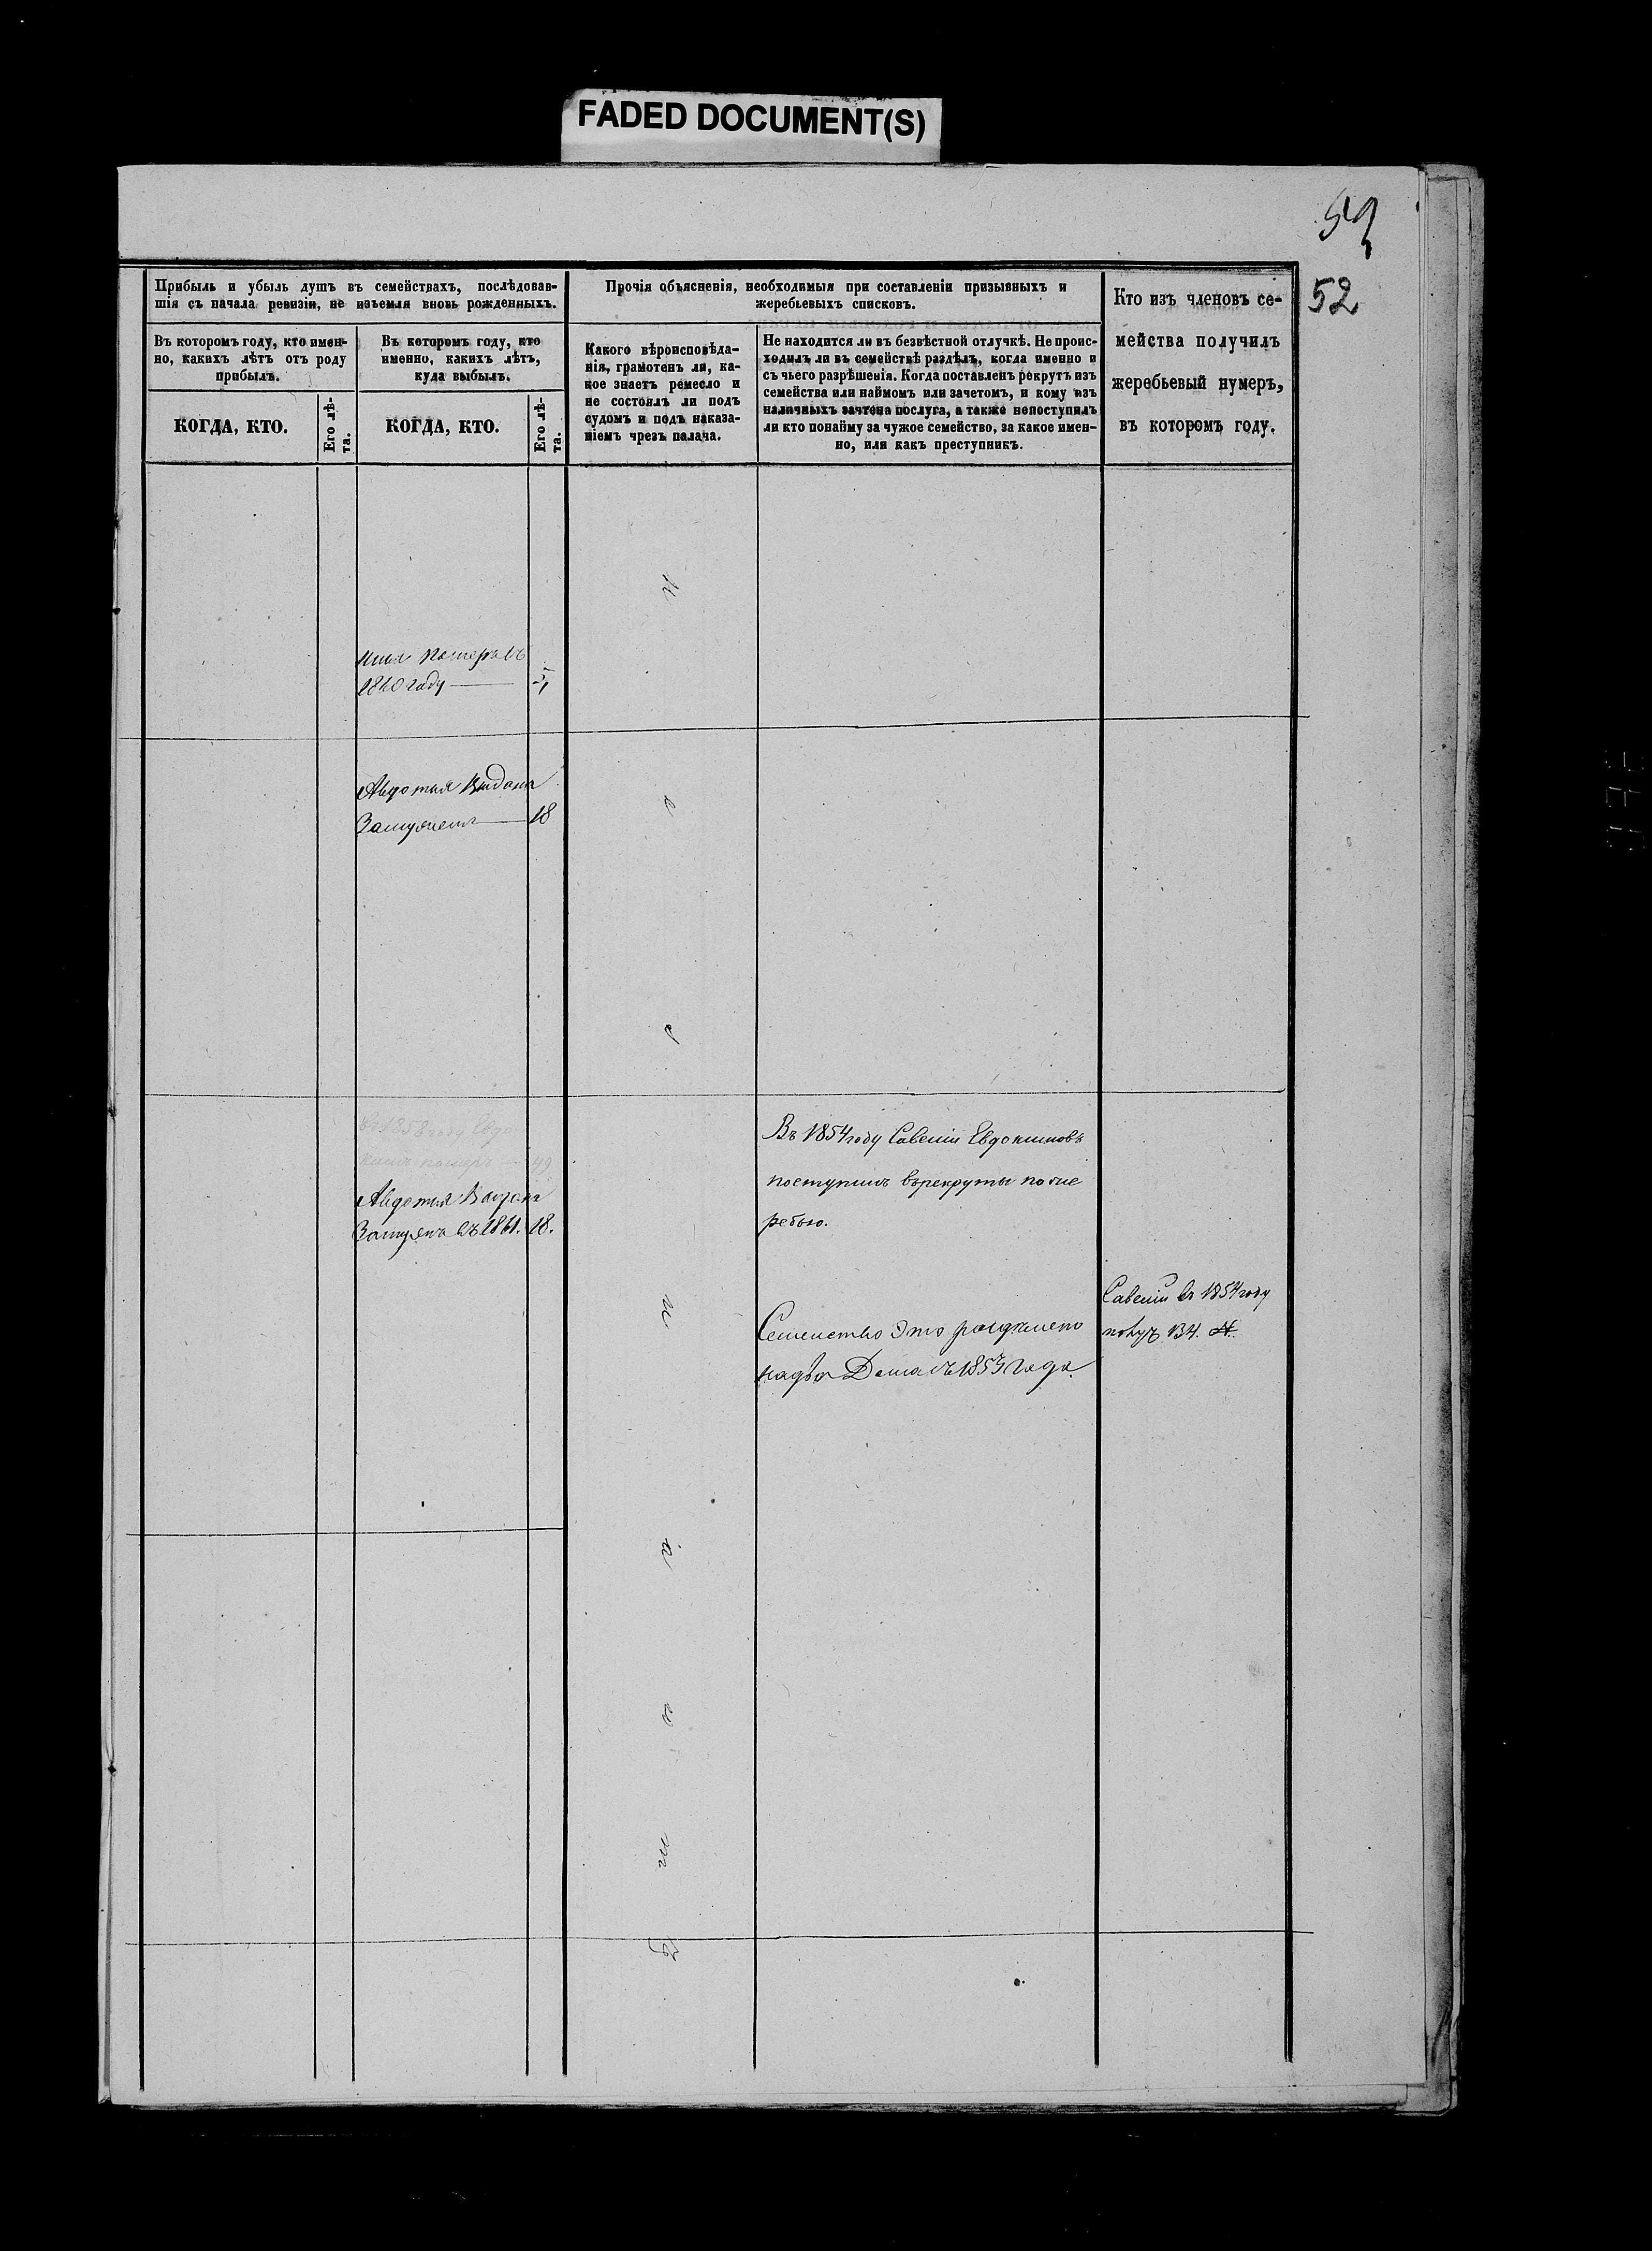 FADED DOCUMENT(S)
52
Прибыль и убыль душъ въ семействахъ, послѣдовав-
шія съ начала ревизіи, не изъемля вновь рожденныхъ.
Въ которомъ году, кто имен-
но, какихъ лѣтъ отъ роду
прибылъ.
КОГДА, КТО.
Его лѣ-
та.
Въ которомъ году, кто
именно, какихъ лѣтъ,
куда выбылъ.
КОГДА, КТО.
Его лѣ-
та.
Прочія объясненія, необходимыя при составленіи призывныхъ и
жеребьевыхъ списковъ.
Какого вѣроисповѣда-
нія, грамотенъ ли, ка-
кое знаетъ ремесло и
не состоялъ ли подъ
судомъ и подъ наказа-
ніемъ чрезъ палача.
Не находится ли въ безвѣстной отлучкѣ. Не проис-
ходилъ ли въ семействѣ раздѣлъ, когда именно и
съ чьего разрѣшенія. Когда поставленъ рекрутъ изъ
семейства или наймомъ или зачетомъ, и кому изъ
наличныхъ зачтена послуга, а также непоступилъ
ли кто понайму за чужое семейство, за какое имен-
но, или какъ преступникъ.
Кто изъ членовъ се-
мейства получилъ
жеребьевый нумеръ,
въ которомъ году.
померъ въ
1860 году
Авдотья Выдана
Замужъ 18
въ 1858 году Евдо
кимъ померъ 49
Авдотья Выдана
Замужъ въ 1861. 18.
Въ 1854 году Савелій Евдокимовъ
поступилъ върекруты пожие
ребью.
Семейство Это раздѣлено
надва Дома въ 1853 года.
Савелій въ 1854 году
134. №.